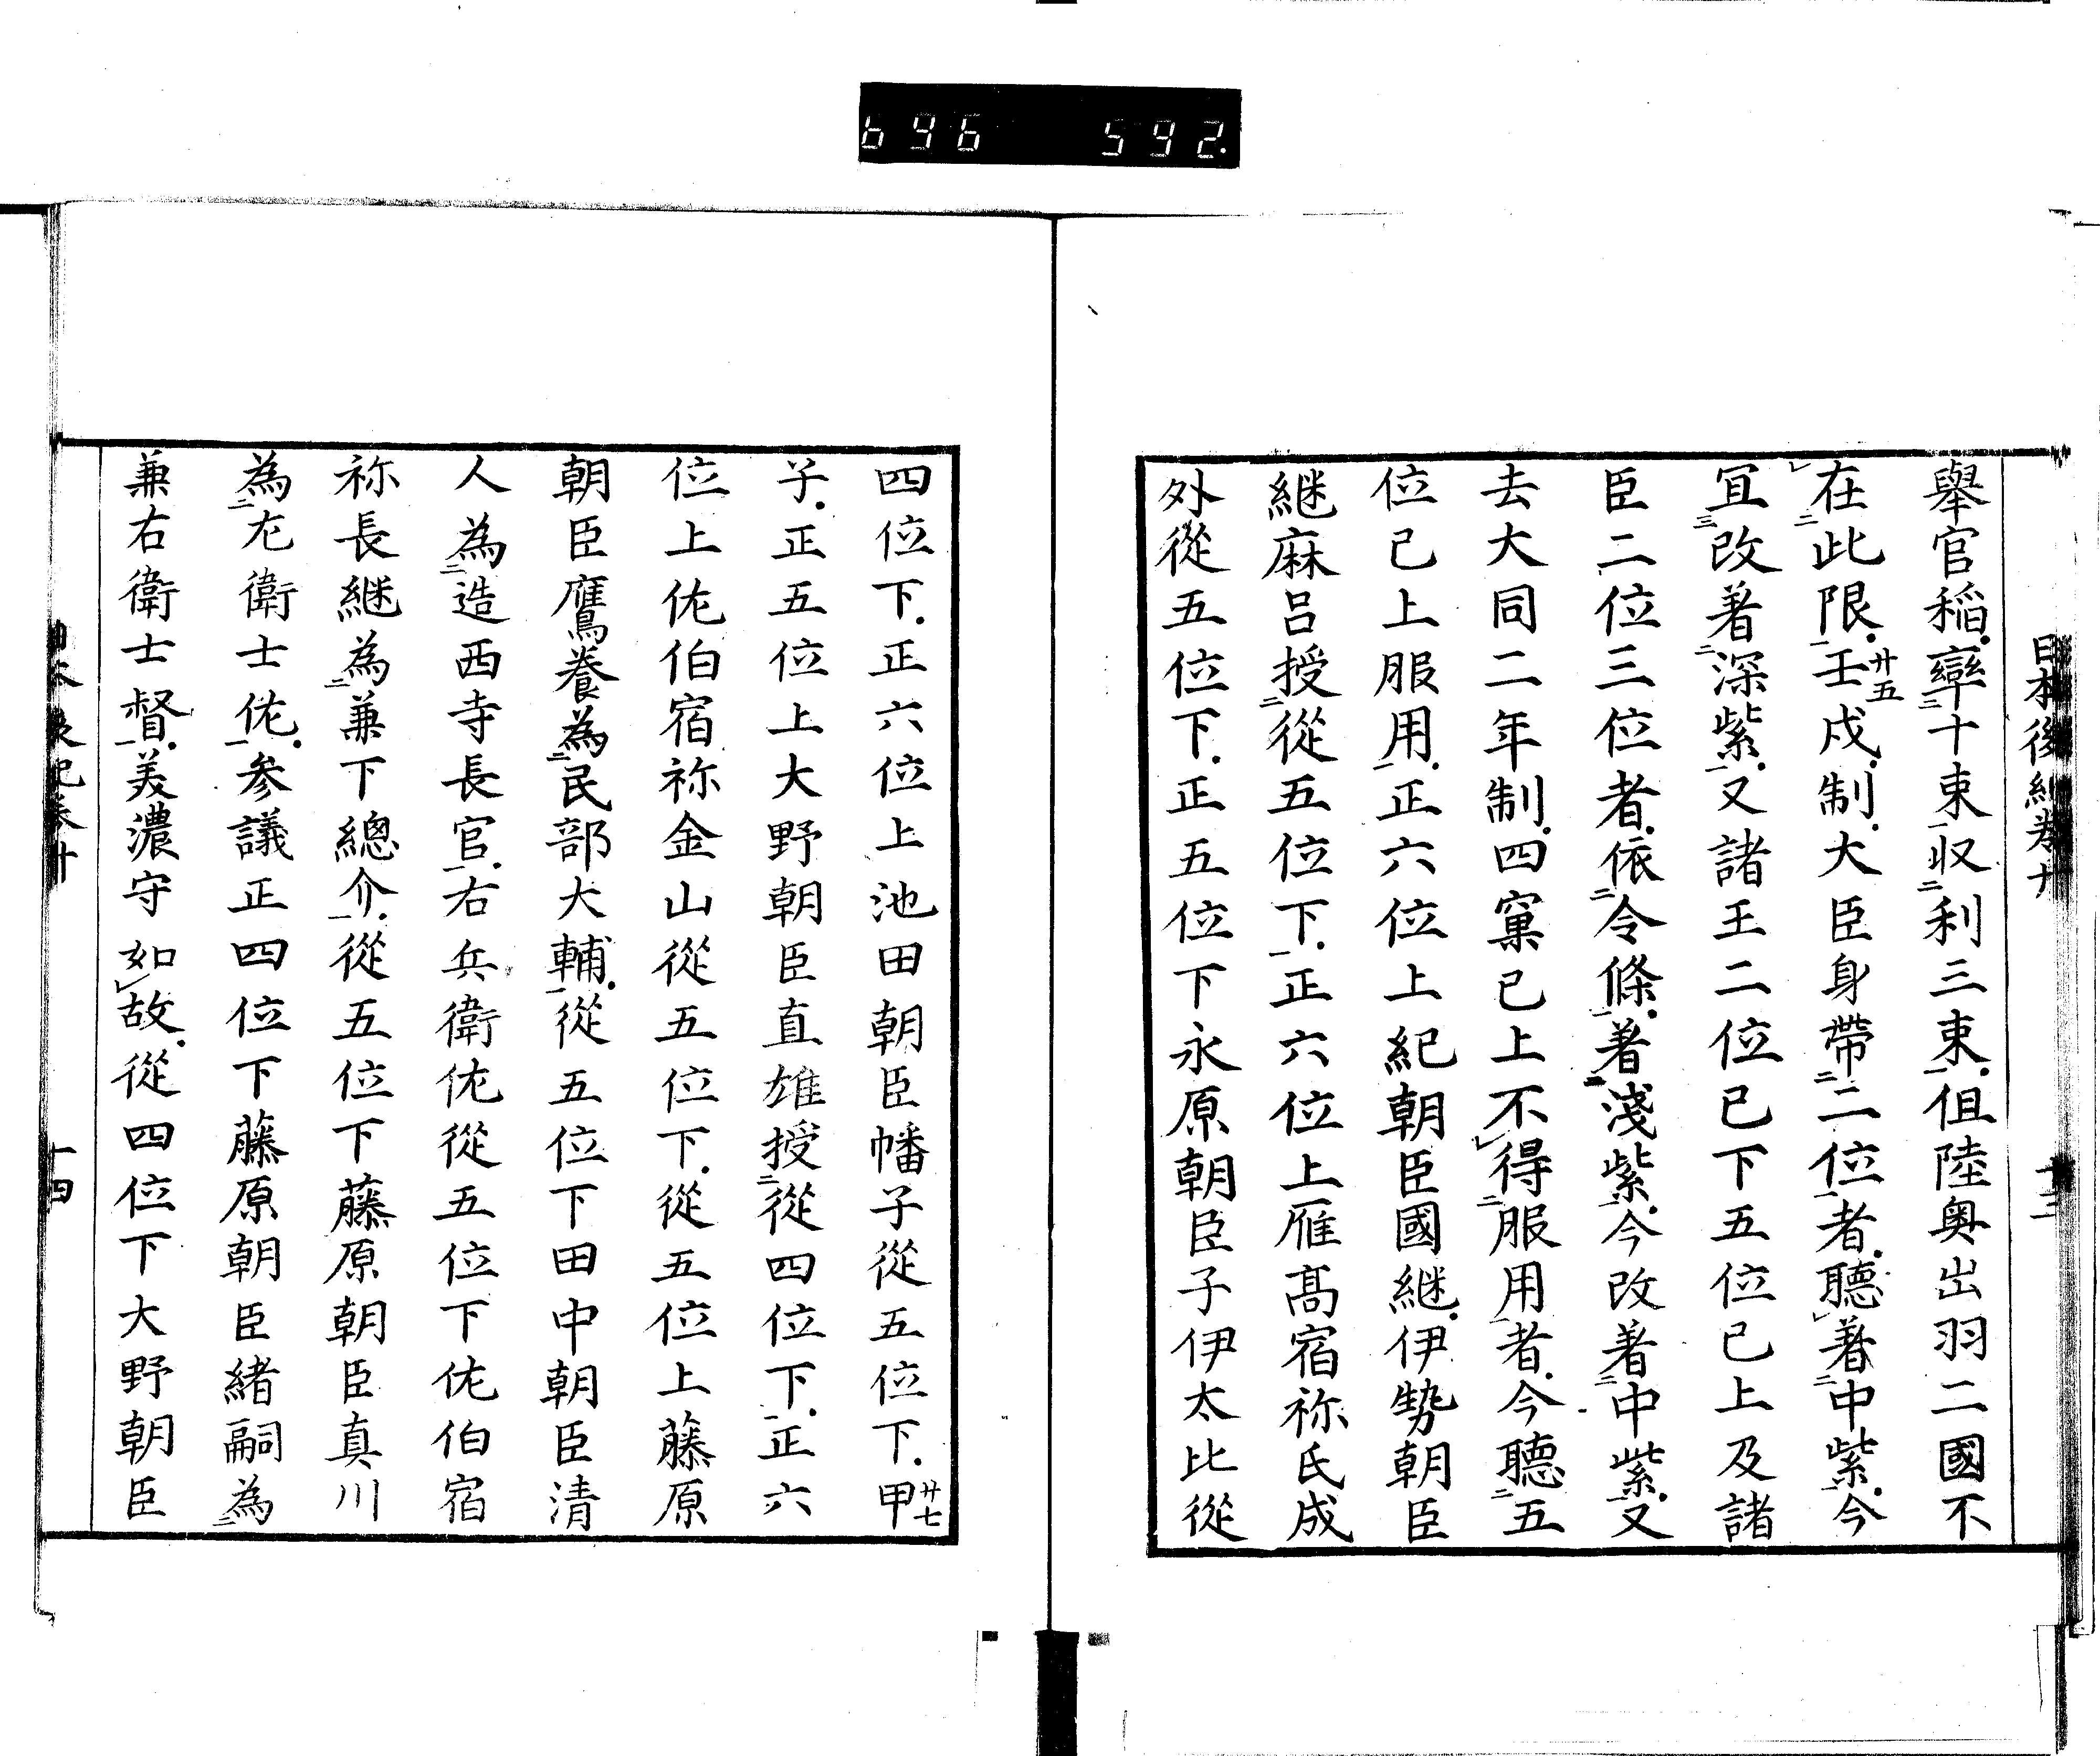 696 592.
日本後紀卷十
舉官稲。率二十束一収二利三束一。但陸奥出羽二國不
レ在二此限一。廿五壬戌。制。大臣身帶二二位一者。聴レ著二中紫一。今
宜三改著二深紫一。又諸王二位已下五位已上及諸
臣二位三位者。依二令條一。著二淺紫一。今改著二中紫一。又
去大同二年制。四窠已上不レ得二服用一者。今聴二五
位已上服用一。正六位上紀朝臣國継。伊勢朝臣
継麻呂授二從五位下一。正六位上雁髙宿祢氏成
外從五位下。正五位下永原朝臣子伊太比從
四位下。正六位上池田朝臣幡子從五位下。廿七甲
子。正五位上大野朝臣直雄授二從四位下一。正六
位上佐伯宿祢金山從五位下。從五位上藤原
朝臣鷹養為二民部大輔一。從五位下田中朝臣清
人為二造西寺長官一。右兵衛佐從五位下佐伯宿
祢長継為二兼下總介一。從五位下藤原朝臣真川
為二左衛士佐一。参議正四位下藤原朝臣緒嗣為二
兼右衛士督一。美濃守如レ故。從四位下大野朝臣
十四